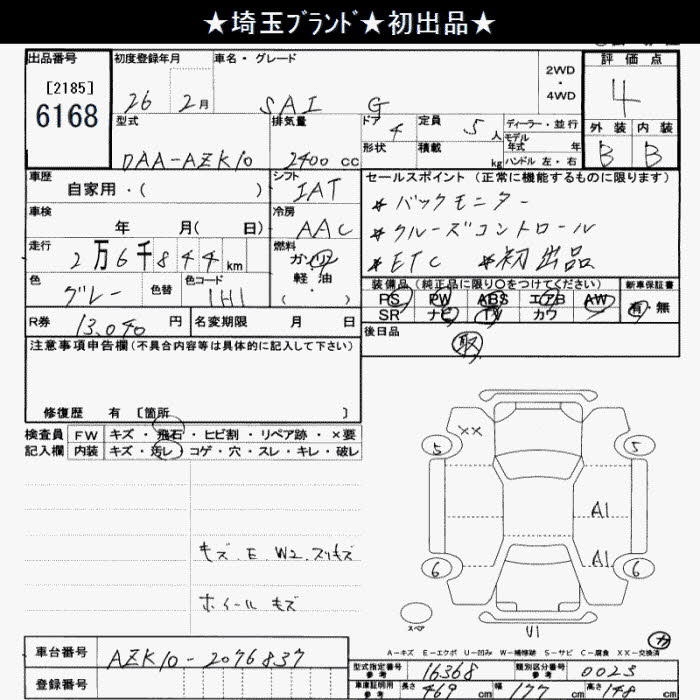 ★埼玉ﾌﾞﾗﾝﾄﾞ★初出品★
出品番号 初度登録年月 車名・グレード 2WD・4WD 評価点
[2185]
6168
26 2月 SAI G 4
型式 排気量 ドア 4 定員 5人 ディーラー・並行 外装 内装
モデル年式 年
形状 積載 kg ハンドル 左・右
DAA-AZK10 2400cc B B
車歴 シフト セールスポイント (正常に機能するものに限ります)
自家用・( ) IAT
*バックモニター
車検 冷房
年 月( 日) AAC
*クルーズコントロール
走行 燃料
2万6千844km ガソリン
*ETC *初出品
色 色替 色コード 軽油
グレー 1H1 ( ・ )
装備品 (純正品に限り○をつけてください) 新車保証書
PS PW ABS エアB AW 有・無
SR ナビ TV カワ
R券 13,040円 名変期限 月 日
後日品
取
注意事項申告欄(不具合内容等は具体的に記入して下さい)
修復歴 有 [箇所 ]
検査員 FW キズ・飛石・ヒビ割・リペア跡・×要
記入欄 内装 キズ・汚レ・コゲ・穴・スレ・キレ・破レ
XX
5 5
A1
A1
6 6
キズ.E.W2.スリキズ
ホイールキズ
スペア
V1
カ
A-キズ E-エクボ U-凹み W-補修跡 S-サビ C-腐食 XX-交換済
車台番号 AZK10-2076837
型式指定番号 参考 16368 類別区分番号 参考 0023
登録番号
車庫証明用 参考 長さ 469cm 幅 177cm 高さ 148cm